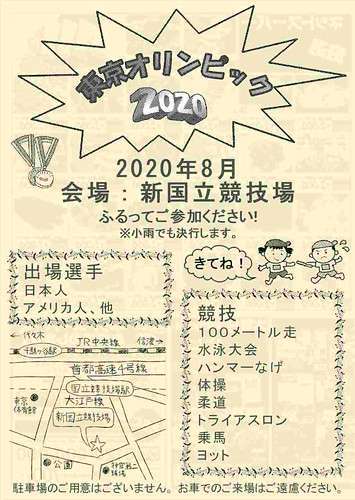 東京オリンピック
2020
2020年8月
会場：新国立競技場
ふるってご参加ください!
※小雨でも決行します。
きてね!
出場選手
日本人
アメリカ人、他
競技
100メートル走
水泳大会
ハンマーなげ
体操
柔道
トライアスロン
乗馬
ヨット
←代々木
JR中央線
信濃→
千駄ヶ谷駅
首都高速4号線
国立競技場駅
大江戸線
東京体育館
新国立競技場
公園
神宮第二球場
駐車場のご用意はございません。お車でのご来場はご遠慮ください。